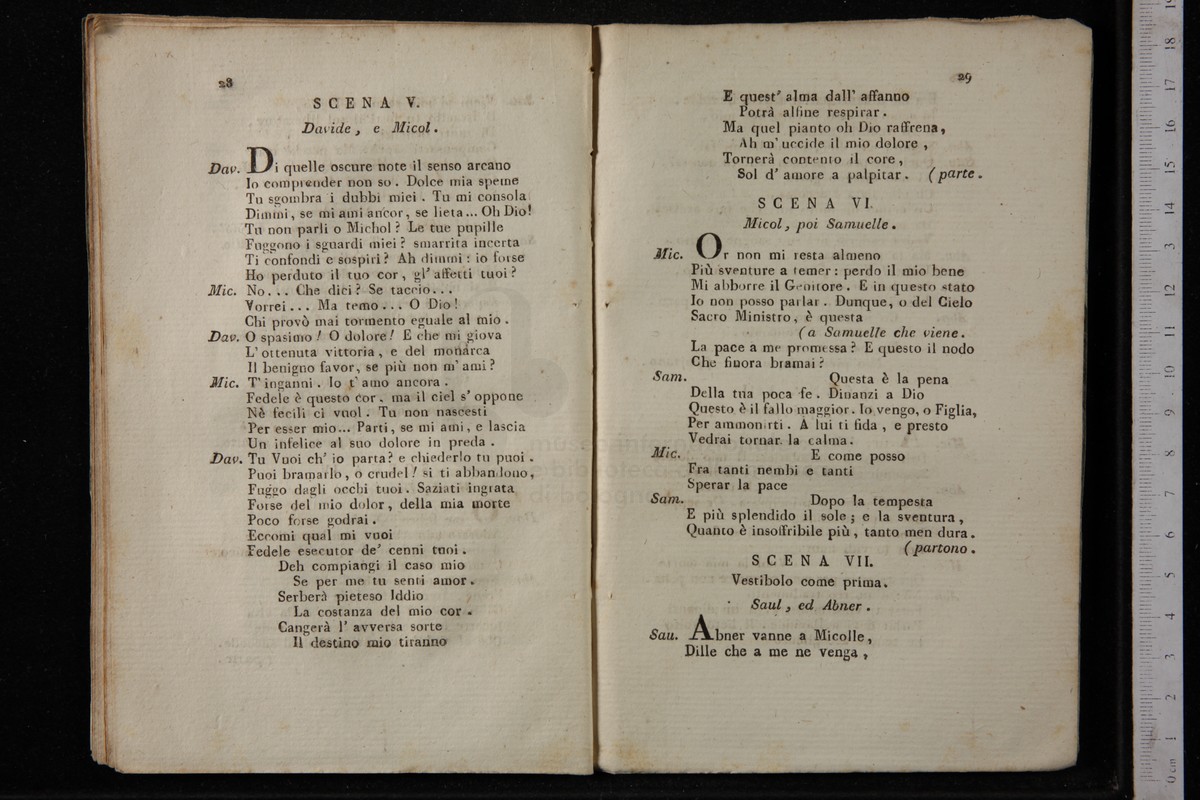 28
SCENA V.
Davide, e Micol.
Dav. Di quelle oscure note il senso arcano
Io comprender non so. Dolce mia speme
Tu sgombra i dubbi miei. Tu mi consola
Dimmi, se mi ami ancor, se lieta... Oh Dio!
Tu non parli o Michol? Le tue pupille
Fuggono i sguardi miei? smarrita incerta
Ti confondi e sospiri? Ah dimmi: io forse
Ho perduto il tuo cor, gl' affetti tuoi?
Mic. No... Che dici? Se taccio...
Vorrei... Ma temo... O Dio!
Chi provò mai tormento eguale al mio.
Dav. O spasimo! O dolore! E che mi giova
L' ottenuta vittoria, e del monarca
Il benigno favor, se più non m' ami?
Mic. T' inganni. Io t' amo ancora.
Fedele è questo cor. ma il ciel s' oppone
Nè fecili ci vuol. Tu non nascesti
Per esser mio... Parti, se mi ami, e lascia
Un infelice al suo dolore in preda.
Dav. Tu Vuoi ch' io parta? e chiederlo tu puoi.
Puoi bramarlo, o crudel! si ti abbandono,
Fuggo dagli occhi tuoi. Saziati ingrata
Forse del mio dolor, della mia morte
Poco forse godrai.
Eccomi qual mi vuoi
Fedele esecutor de' cenni tuoi.
Deh compiangi il caso mio
Se per me tu senti amor.
Serberà pieteso Iddio
La costanza del mio cor.
Cangerà l' avversa sorte
Il destino mio tiranno
29
E quest' alma dall' affanno
Potrà alfine respirar.
Ma quel pianto oh Dio raffrena,
Ah m' uccide il mio dolore,
Tornerà contento il core,
Sol d' amore a palpitar. (parte.
SCENA VI.
Micol, poi Samuelle.
Mic. Or non mi resta almeno
Più sventure a temer: perdo il mio bene
Mi abborre il Genitore. E in questo stato
Io non posso parlar. Dunque, o del Cielo
Sacro Ministro, è questa
(a Samuelle che viene.
La pace a me promessa? E questo il nodo
Che finora bramai?
Sam. Questa è la pena
Della tua poca fe. Dinanzi a Dio
Questo è il fallo maggior. Io vengo, o Figlia,
Per ammonirti. A lui ti fida, e presto
Vedrai tornar la calma.
Mic. E come posso
Fra tanti nembi e tanti
Sperar la pace
Sam. Dopo la tempesta
E più splendido il sole; e la sventura,
Quanto è insoffribile più, tanto men dura.
(partono.
SCENA VII.
Vestibolo come prima.
Saul, ed Abner.
Sau. Abner vanne a Micolle,
Dille che a me ne venga,